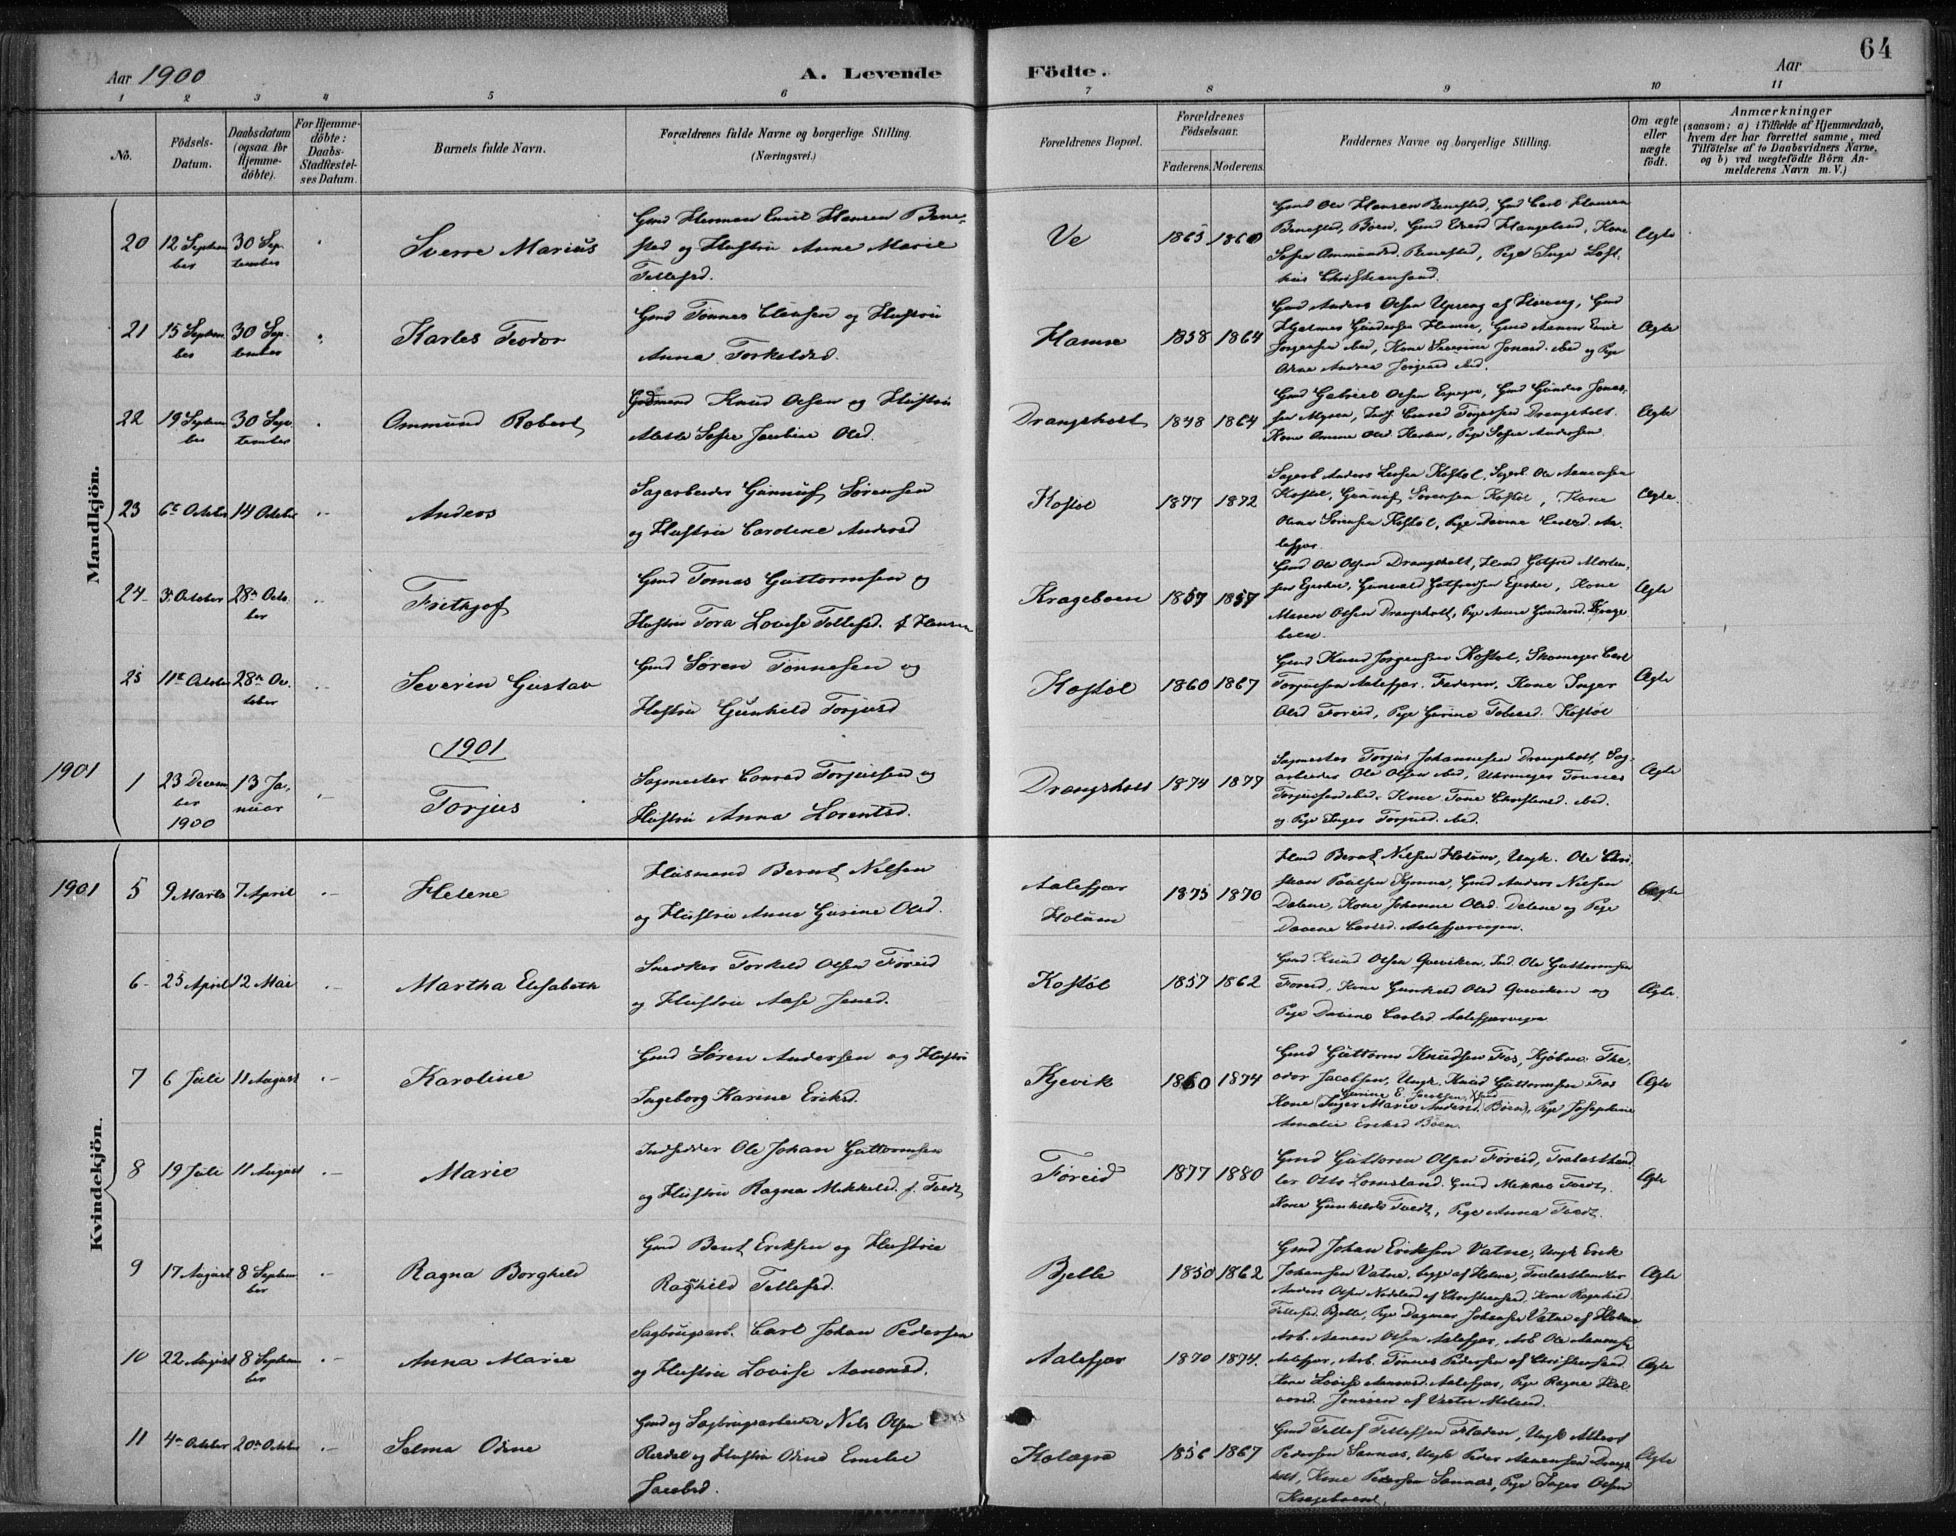 64
Aar 1900
A. Levende
Födte.
Aar
1 2 3 4 5 6 7 8 9 10 11
No.
Födsels-
Datum.
Daabsdatum
(ogsaa for
Hjemme-
döbte).
For Hjemme-
döbte:
Daabs-
Stadfæstel-
ses Datum.
Barnets fulde Navn.
Forældrenes fulde Navne og borgerlige Stilling.
(Næringsvei.)
Forældrenes Bopæl.
Forældrenes
Födselsaar.
Faderens. Moderens.
Faddernes Navne og borgerlige Stilling.
Om ægte
eller
uægte
födt.
Anmærkninger
(saasom: a) i Tilfælde af Hjemmedaab,
hvem der har forrettet samme, med
Tilföielse af to Daabsvidners Navne,
og b) ved uægtefödte Börn An-
melderens Navn m. V.)
Mandkjön.
20
12 Septem
ber
30 Sep.
tember
Sverre Marius
Gmd Herman Emil Hansen Bene-
sted og Hustru Anne Marie
Tellefsd.
Ve
1865 1860
Gmd Ole Hansen Benestad, Gmd Carl Hansen
Benestad, Boen, Gmd Hangeland, Kone
Sofie Ommundsd. Benestad, Pige Inga Loft
hus Christiansand.
Ægte
21
15 Septem
ber
30 Sep
tember
Karles Teodor
Gmd Tønnes Clausen og Hustru
Anna Torkeldsd.
Hamre
1858 1864
Gmd Anders Olsen Hamre, Gmd Aanen Emil
Jørgensen ibd, Kone Severine Jensd. ibd og Pige
Andrea Jørgensd ibd.
Ægte
22
19 Septem
ber
30 Sep.
tember
Ommund Robert
Gmd Knud Olsen og Hustru
Mette Sofie Jacobine Olsd.
Drangsholt
1848 1864
Gmd Gabriel Olsen Gmd Gunder Jonas-
sen Myren, Conrad Torjussen Drangsholt.
Kone Olsd Pige Sofie Andersen.
Ægte
23
6te October
14 October
Anders
Sagarbeider Gunnuf Sørensen
og Hustru Caroline Andersd
Kostøl
1877 1872
Sagarb Anders Larsen Kostøl, Sagarb Ole Aanensen
Kostøl, Gunnuf Sørensen Kostøl, Kone
Olene Sørensen Kostøl, Pige Davine Carlsd. Aa-
lefjær
Ægte
24
3 October
28de Octo.
ber
Frithjof
Gmd Tomas Guttormsen og
Hustru Tora Lovise Tellefsd. f. Hansen
Krageboen
1857 1857
Gmd Ole Olsen Drangsholt, Gotfred Morten-
sen Gunvald Gotfredsen Kone
Maren Olsen Drangsholt, Pige Anne Gundersd. Krage
boen.
Ægte
25
11te October
28de Oc.
tober
Severin Gustav
Gmd Søren Tønnesen og
Hustru Gunhild Torjusd
Kostøl
1860 1867
Gmd Knud Jørgensen Kostøl, Skomager Carl
Torjusen Aalefjær. Faderen, Kone Inger
Olsd Føreid, Pige Gurine Tobiasd. Kostøl
Ægte
1901
1901
1
23 Decem
ber
1900
13 Ja,
nuar
Torjus
Sagmester Conrad Torjussen og
Hustru Anna Lorentsd.
Drangsholt
1874 1877
Sagmester Torjus Johannesen Drangsholt, Sag-
arbeider Ole Olsen ibd, Uhrmager Tønnes
Torjussen ibd. Kone Tone Christensd. ibd.
og Pige Inger Torjusd. ibd.
Ægte
Kvindekjön.
1901
5
9 Marts
7 April
Helene
Husmand Bernt Nilsen
og Hustru Anne Gusine Olsd.
Aalefjær
Holum
1875 1870
Hmd Bernt Nilsen Holum, Ungk. Ole Chri-
stian Paalsen Kjonne, Gmd Anders Nielsen
Dalene, Kone Johanne Olsd. Dalene og Pige
Davine Carlsd. Aalefjærvegen.
Ægte
6
25 April
12 Mai
Martha Elisabeth
Snedker Torkeld Olsen Føreid
og Hustru Aase Jensd.
Kostøl
1857 1862
Gmd Knud Olsen Qveviken, Ole Guttormsen
Føreid, Kone Gunhild Olsd Qveviken og
Pige Davine Carlsd. Aalefjærvegen
Ægte
7
6 Juli
11 August
Karoline
Gmd Søren Andersen og Hustru
Ingeborg Karine Eriksd.
Kjevik
1860 1874
Gmd Guttorm Knudsen Fos, Kjøbm. The-
odor Jacobsen, Ungk. Knud Guttormsen Fos
Gurine E. Jacobsen
Kone (Inger Marie Andersd. Boen), Pige Josephine
Amalie Eriksd Boen.
Ægte
8
19 Juli
11 August
Marie
Indsidder Ole Johan Guttormsen
og Hustru Ragna Mikkelsd. f. Tvedt
Føreid
1877 1880
Gmd Guttorm Olsen Føreid, Trælasthand
ler Otto Lomsland. Gmd Mikkel Tvedt.
Kone Gunhilde Tvedt, Pige Anna Tvedt.
Ægte
9
17 August
8 Septem
ber
Ragna Borghild
Gmd Bent Eriksen og Hustru
Ragnhild Tellefsd.
Bjelle
1850 1862
Gmd Johan Eriksen Vatne, Ungk Erik
Johansen Vatne, begge af Holme, Trælasthandler
Anders Olsen Nodeland af Christiansand. Kone Ragnhild
Tellefsd. Bjelle, Pige Dagmar Johansen Vatne af Holme
Ægte
10
22 August
8 Septem
ber
Anna Marie
Sagbrugsarb. Carl Johan Pedersen
og Hustru Lovise Aanensd.
Aalefjær
1870 1874.
Arb. Aanen Olsen Aalefjær, Arb Ole Aanensen
Aalefjær, Arb. Tønnes Pedersen af Christiansand.
Kone Lovise Aanensd. Aalefjær, Pige Ragna Hal-
vorsd. Jonsen af Vestre Moland.
Ægte
11
4de October
20de October
Selma Odine
Gmd og Sagbrugsarbeider Nils Olsen
og Hustru Odine Emelie
Jacobsd.
1856 1867
Gmd Tellef Tellefsen Fladen, Ungk Albert
Pedersen Sannæs, Ungk Peder Aanensen Drangs
holt, Kone Pedersen Sannæs, Pige Inger Olsen
Krageboen.
Ægte